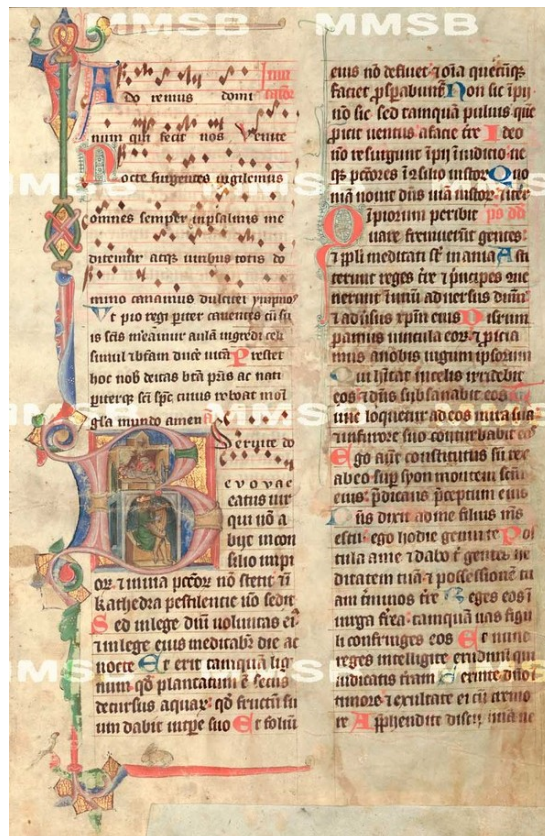 MMSB MMSB
A
do remus domi
num qui fecit nos Venite
Nocte surgentes vigilemus
omnes semper in psalmis me
ditemur atqꝫ viribus totis do
mino canamus dulciter ympnos
Vt pio regi pariter canentes cū su
is scīs meamur aulā ingredi celi
simul Prestet
hoc nob deitas btā pris ac nati
piterqꝫ scī spc cuius reboat
gl̄a mundo amen
Seruite do
evovae
Beatus vir
qui nō a
bijt in con
silio impi
oꝝ ⁊ in via pctōꝝ nō stetit ⁊ ī
kathedra pestilencie nō sedit
Sed in lege dnī voluntas eiꝰ
⁊ in lege eius meditabit die ac
nocte Et erit tamquā lig
num qd̄ plantatum ē secus
decursus aquaꝝ qd̄ fructū su
um dabit in tpe suo Et foliū
eius nō defluet ⁊ oīa quecūqꝫ
faciet ꝓspabunt Non sic īpij
nō sic sed tamquā puluis quē
ꝓicit ventus a facie tre Ideo
nō resurgunt īpij ī iudicio ne
qꝫ pctōres ī ↄsilio iustoꝝ Quo
niā nouit dn̄s viā iustoꝝ ⁊ iter
īpiorum peribit ps dd
Quare fremuerūt gentes
⁊ ppli meditati st̄ inania Asti
terunt reges tre ⁊ pncipes ꝯue
nerunt ī unū aduersus dnm̄
⁊ adūsus xpm̄ eius Disrum
pamus vincula eoꝝ ⁊ ꝓicia
mus a nobis iugum ipsorum
Qui hītat in celis irridebit
eos ⁊ dn̄s subsannabit eos
Tunc loquetur ad eos in ira sua
⁊ in furore suo conturbabit eos
Ego aūt constitutus sū rex
ab eo sup syon montem scm̄
eius p̄dicans p̄ceptum eius
Dn̄s dixit ad me filius mꝰ
es tu ego hodie genui te Pos
tula a me ⁊ dabo t̄ gentes he
ditatem tuā ⁊ possessionē tu
am t̄minos tre Reges eos ī
virga frea tamquā vas figu
li confringes eos Et nunc
reges intelligite erudimini qui
iudicatis tram Seruite dn̄o ī
timore ⁊ exultate ei cū tremo
re Apphendite